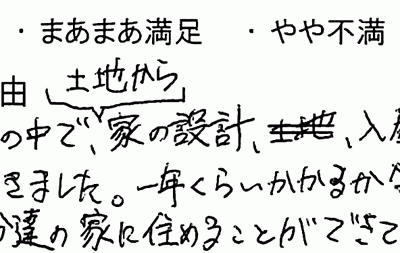 ・まあまあ満足 ・やや不満
由 土地から
の中で、家の設計、土地、入
きました。一年くらいかかるか
達の家に住めることができて